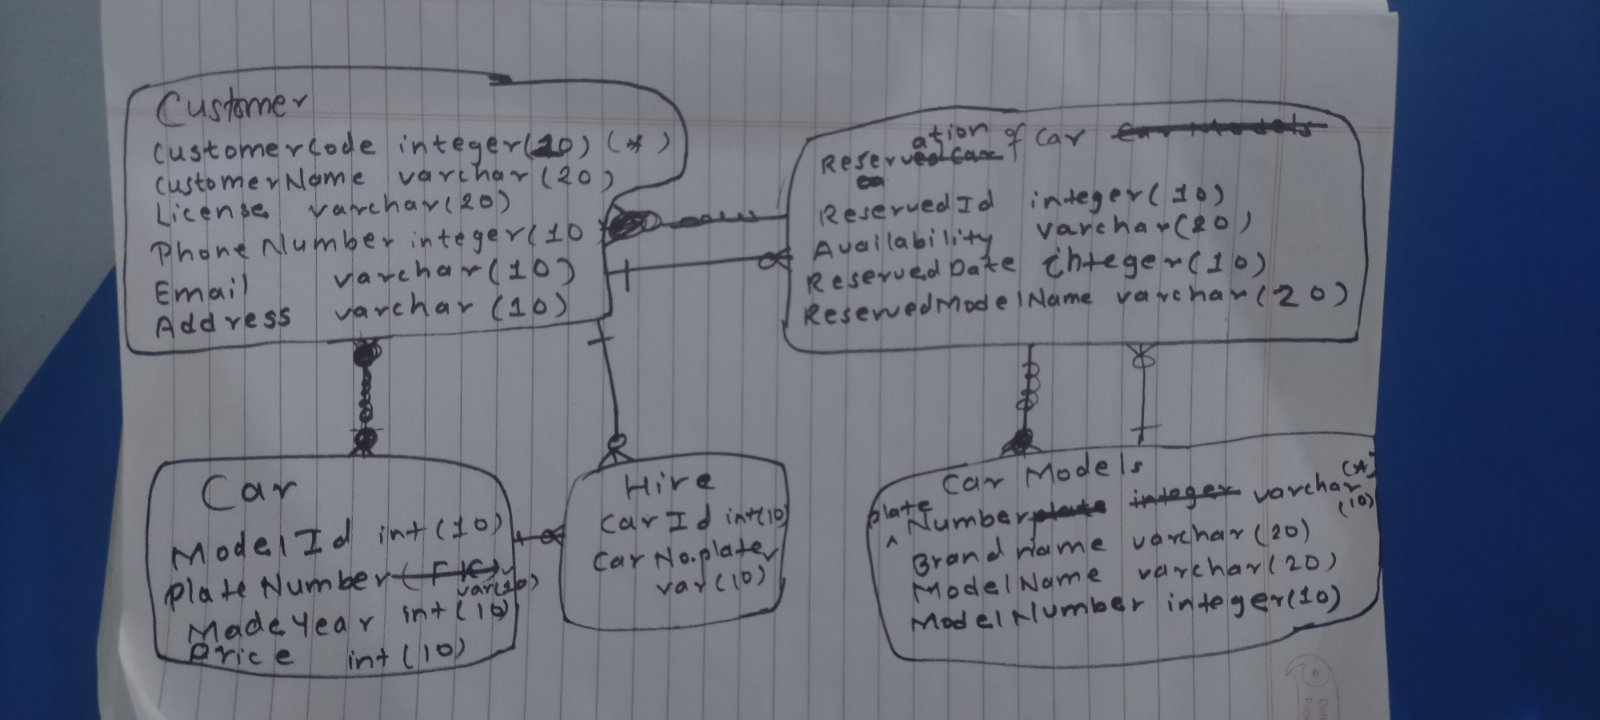 Customer
Customercode integer(20) (*)
CustomerName varchar(20)
License varchar(20)
Phone Number integer(10
Email varchar(10)
Address varchar (10)
Reservation of Car
ReservedId integer(10)
Availability varchar(20)
ReservedDate integer(10)
ReservedModelName varchar(20)
Car
ModelId int(10)
PlateNumber var(10)
MadeYear int(10)
Price int(10)
Hire
CarId int(10)
Car No.plate
var(10)
Car Models
plate Number varchar (*) (10)
Brand name varchar (20)
ModelName varchar(20)
ModelNumber integer(10)